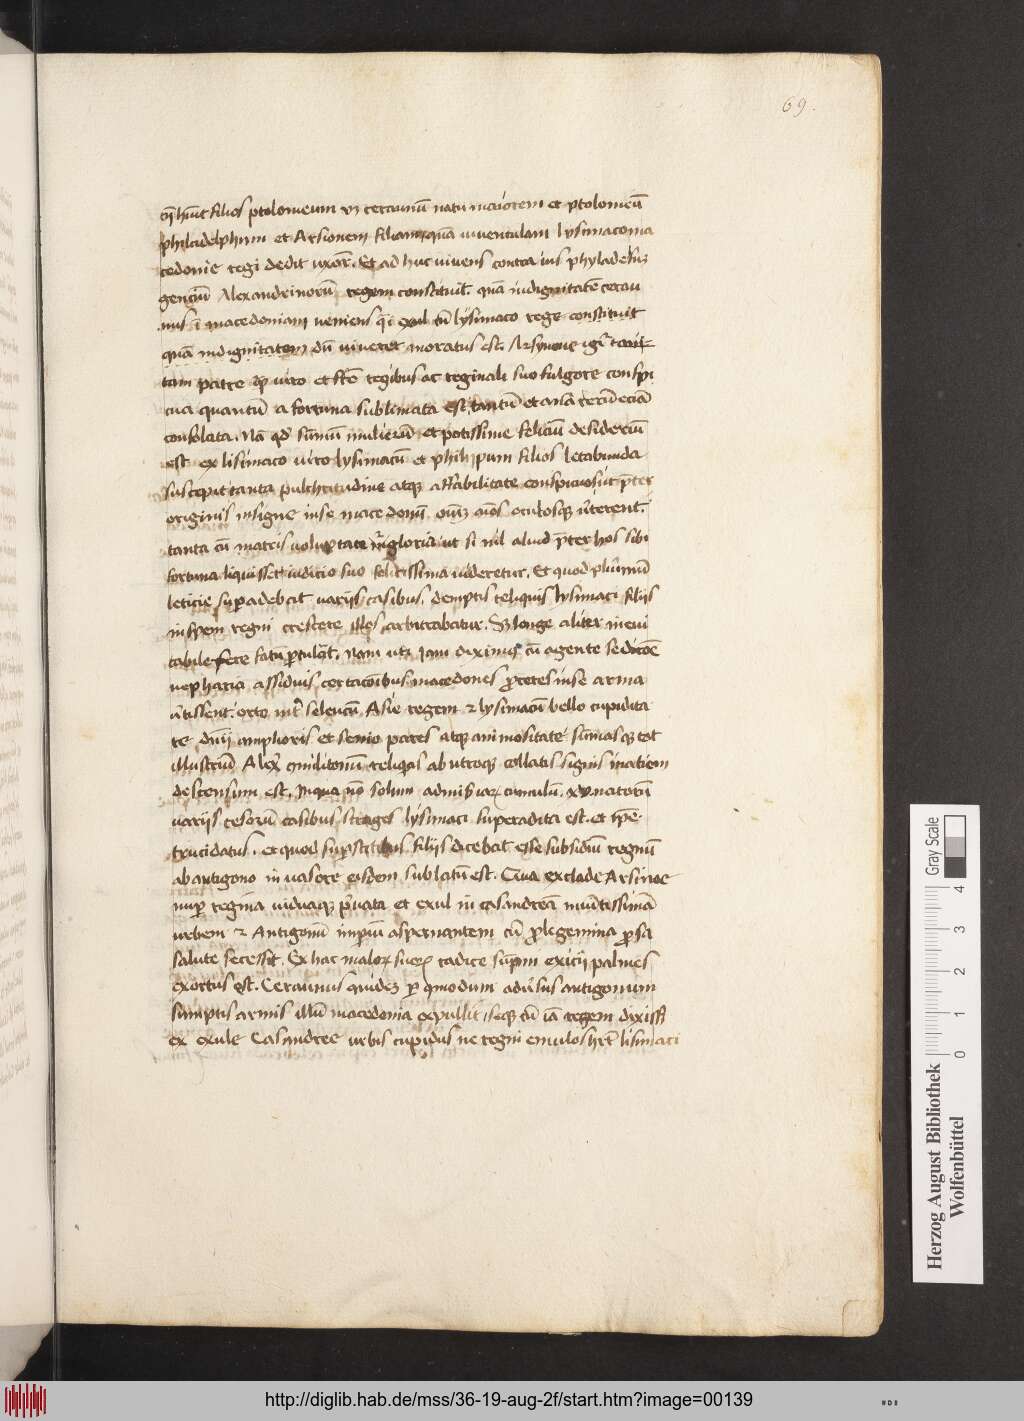 69.
filios ptolomeum ceraunū natu maiorem et ptolomeū
philadelphum et Arsionem filiam quā iuventulam lysimaco ma
cedonie regi dedit uxor̄. Et ad huc vivens contra ius phyladelfū
gentiū Alexandrinorū regem constituit. quā indignitatē cerau
nus ī macedoniam veniens cū lysimaco rege constituit
quā indignitatem dū viveret moratus est. Arsynone igr̄
tam patre viro et regibus ac reginali suo fulgore conspi
cua quantū a fortuna sublimata est tantū et
consolata. Nā qd̄ sūmū mulierū et potissime feliciū desideriū
est ex lisimaco viro lysimacū et philippum filios letabunda
suscepit tanta pulchritudine atqȝ affabilitate conspicuos ut pret̄
originis insigne in se macedonū oculosqȝ
tanta cū matris voluptate gloria ut si nil aliud p̄ter hos sibi
fortuna liquisset iudicio suo felicissima videretur. Et quod plurimū
leticie supaddebat varijs casibus demptis reliquis lysimaci filijs
in spem regni crescere illos arbitrabatur. Sȝ longe aliter inevi
tabile fere fatū ptulit. Nam uti iam diximus cū agente sedicōe
nepharia assiduis certacōibus macedones in se arma
orto int̄ seleucū Asie regem ⁊ lysimacū bello cupidita
te amplioris et senio pares atqȝ animositate sūmas qȝ tot
illustriū Alex̄ cōmilitonū reliqas ab utroqȝ collatis signis in aciem
descensum est. In qua nō solum
varijs casibus strages lysimaci superaddita est. et
trucidatus. et quod supstitibus filijs dicebat esse subsidiū regnū
ab antigono invasore eisdem sublatū est. Qua ex clade Arsinoe
nup regina viduaqȝ pvata et exul in casandreā
urbem ⁊ Antigonū impiū aspernantem cū ple gemina psa
salute secessit. Ex hac maloꝝ radice exicij palmes
exortus est. Ceraunus quidē p qmodum advsus antigonum
sumptis armis illū macedonia expullit, seqȝ cū iā regem dixiss̄
ex exule Casandree urbis cupidus ne regni emulos lisimaci
Herzog August Bibliothek
Wolfenbüttel
Gray Scale
0 1 2 3 4
http://diglib.hab.de/mss/36-19-aug-2f/start.htm?image=00139